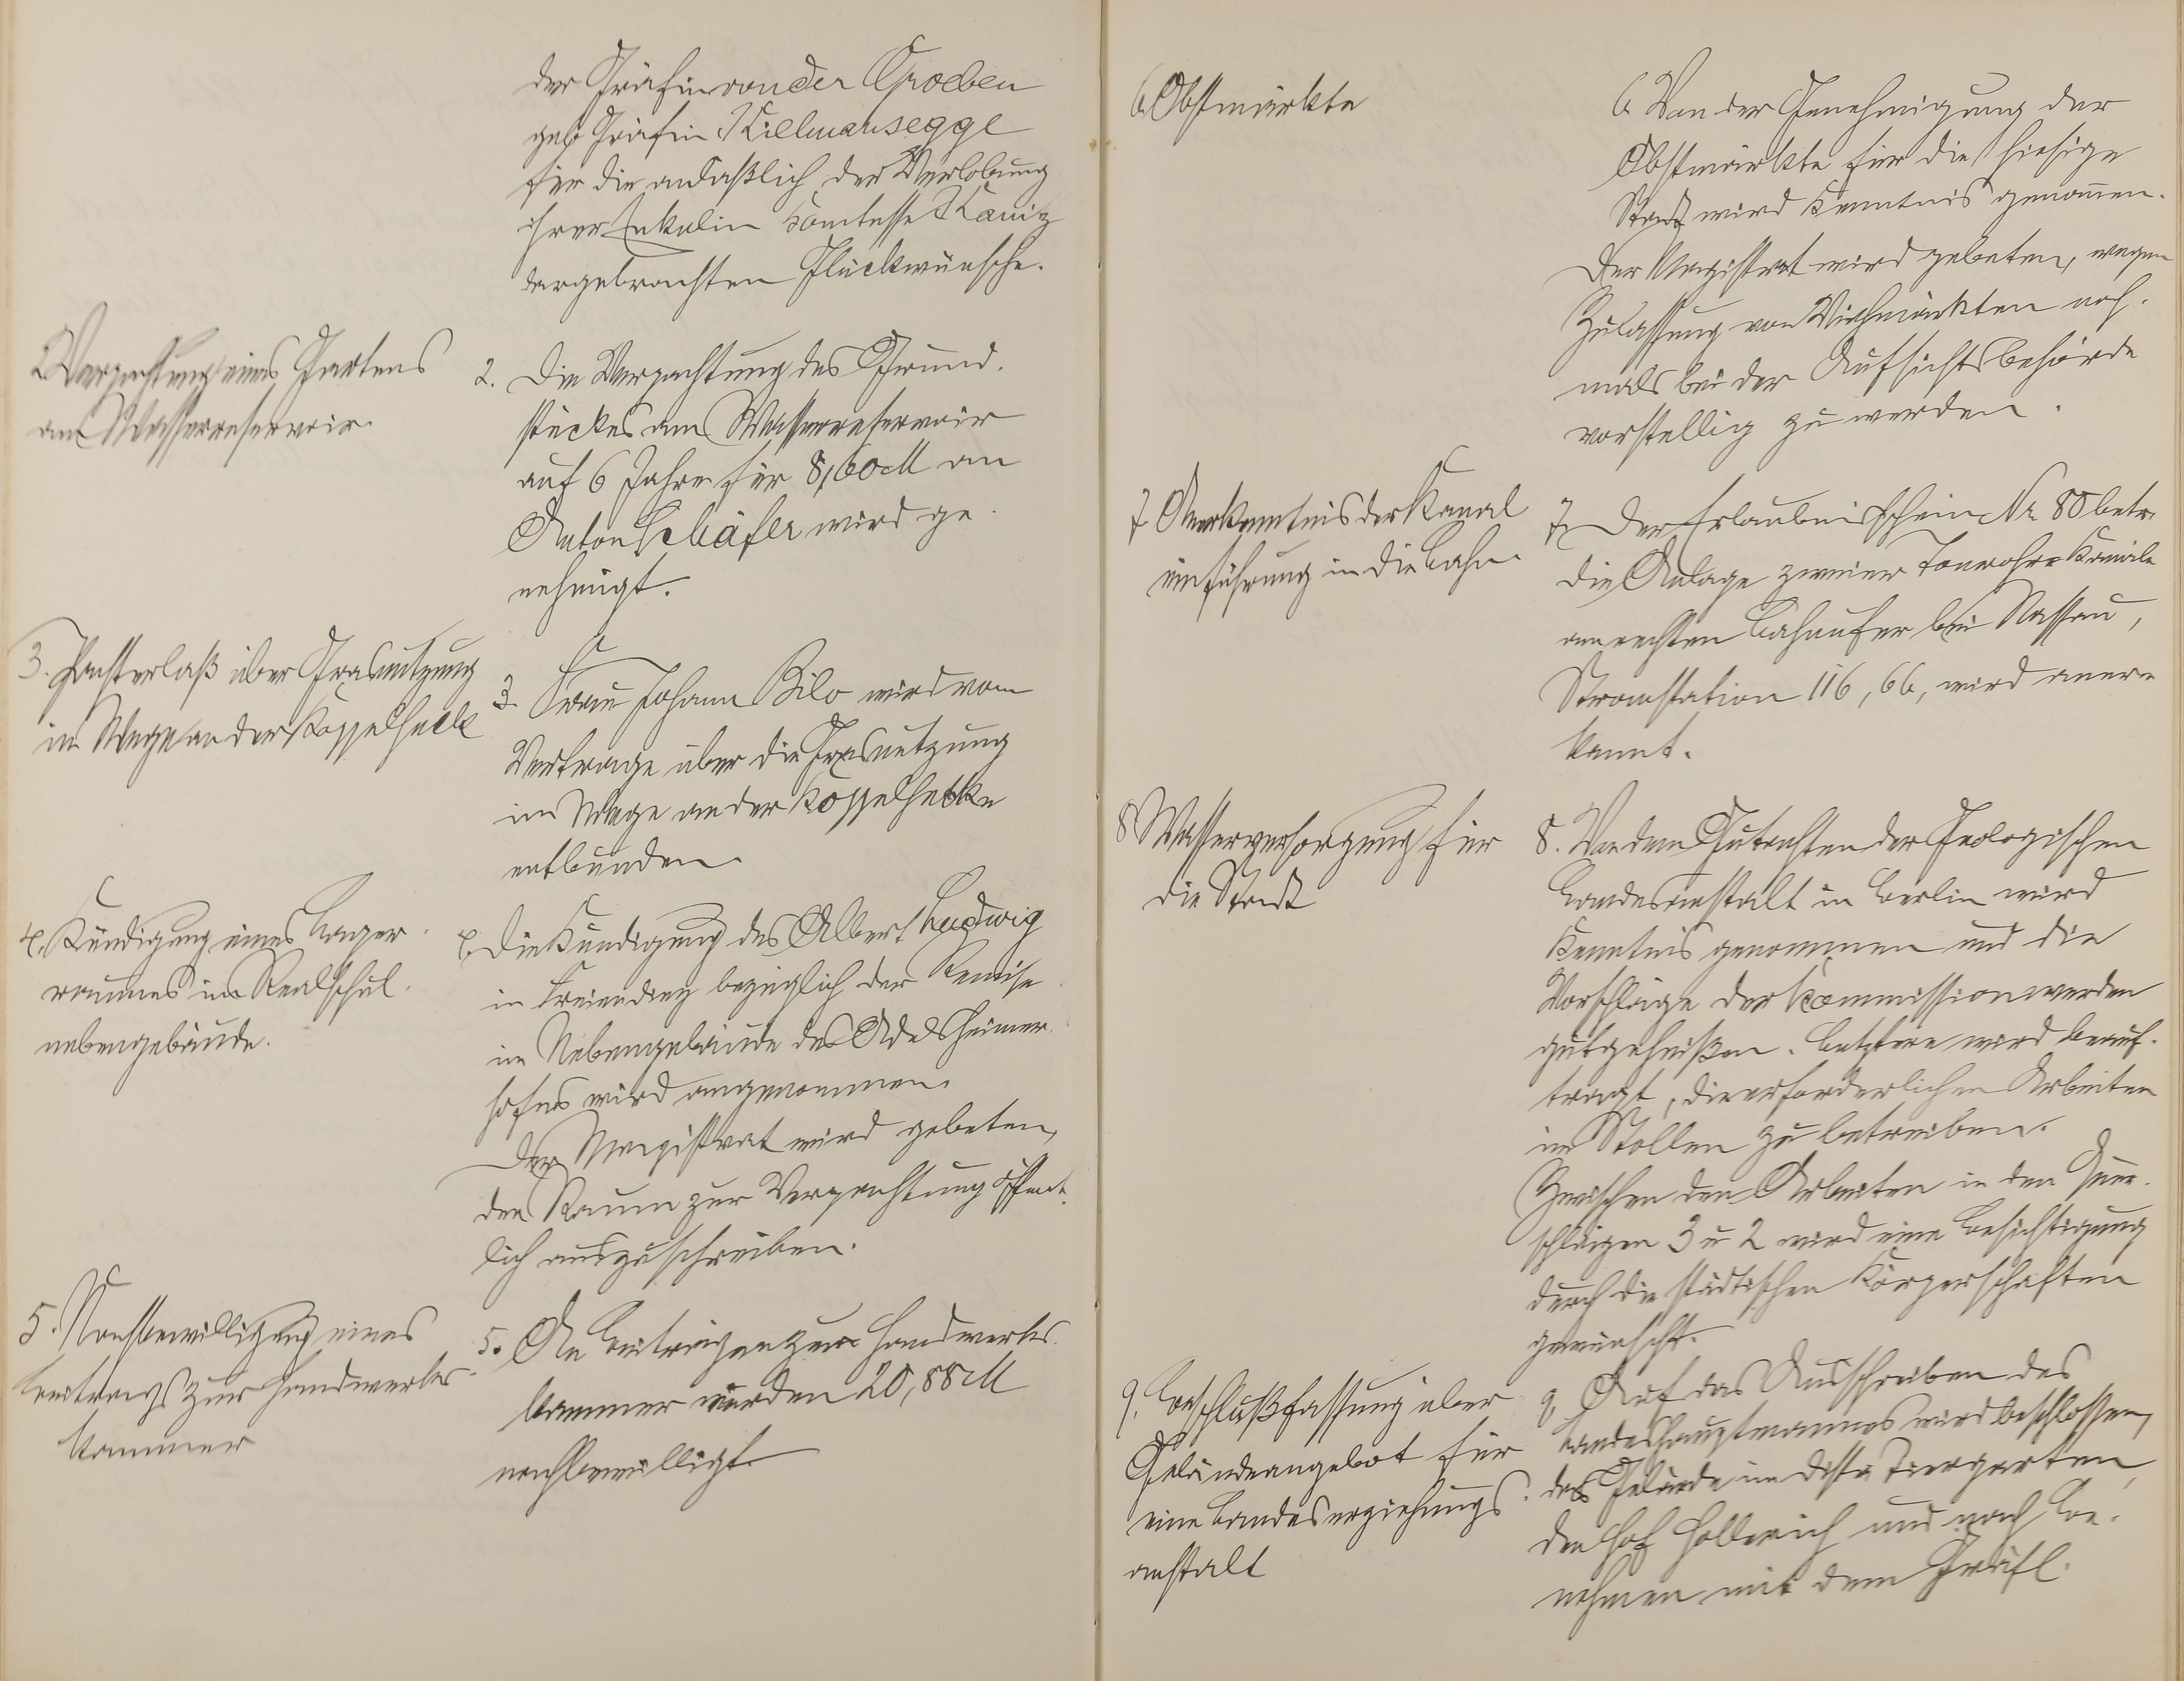 der Gräfin von der Groeben
geb Gräfin Kielmansegge
für die anläßlich der Verlobung
ihrer Enkelin Komtesse Kanitz
dargebrachten Glückwünsche.
2 Verpachtung eines Gartens
am Wasserreservoir.
2. Die Verpachtung des Grund-
stückes am Wasserreservoir
auf 6 Jahre für 8,60 M an
Anton Schäfer wird ge-
nehmigt.
3. Pachterlaß über Grasnutzung
im Wege an der Koppelheck
3. Frau Johann Bilo wird vom
Vertrage über die Grasnutzung
im Wege an der Koppelhecke
entbunden.
4. Kündigung eines Lager-
raumes im Realschul-
nebengebäude.
4. Die Kündigung des Albert Ludwig
in Freiendiez bezüglich der Remise
im Nebengebäude des Adelsheimer
hofes wird angenommen.
Der Magistrat wird gebeten,
den Raum zur Verpachtung öffent-
lich auszuschreiben.
5. Nachbewilligung eines
Beitrags zur Handwerks-
kammer
5. An Beiträgen zur Handwerks-
kammer werden 20,88 M
nachbewilligt.
6 Obstmärkte
6. Von der Genehmigung der
Obstmärkte für die hiesige
Stadt wird Kenntnis genommen.
Der Magistrat wird gebeten, wegen
Zulassung von Viehmärkten noch-
mals bei der Aufsichtsbehörde
vorstellig zu werden.
7. Anerkenntnis der Kanal
einführung in die Lahn
7. Der Erlaubnisschein Nr. 80 betr.
die Anlage zweier Tonrohr-Kanäle
am rechten Lahnufer bei Nassau,
Stromstation 116,66, wird aner-
kannt.
8 Wasserversorgung für
die Stadt
8. Von dem Gutachten der Geologischen
Landesanstalt in Berlin wird
Kenntnis genommen und die
Vorschläge der Kommission werden
gutgeheißen. Letztere wird beauf-
tragt, die erforderlichen Arbeiten
im Stollen zu betreiben.
Zwischen den Arbeiten in den Quer-
schlägen 3 u 2 wird eine Besichtigung
durch die städtischen Körperschaften
gewünscht.
9. Beschlußfassung über
Geländeangebot für
eine Landeserziehungs-
anstalt
9. Auf das Ausschreiben des
Landeshauptmannes wird beschlossen,
das Gelände im Distr. Tiergarten,
den Hof Hollerich und nach Be-
nehmen mit dem Gräfl.